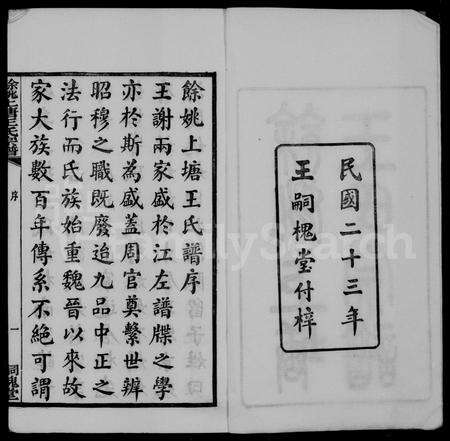 民國二十三年
王嗣槐堂付梓
餘姚上塘王氏譜序
王謝兩家盛於江左譜牒之學
亦於斯為盛蓋周官奠繫世辨
昭穆之職既廢迨九品中正之
法行而氏族始重魏晉以來故
家大族數百年傳系不絕可謂
序
一
FamilySearch